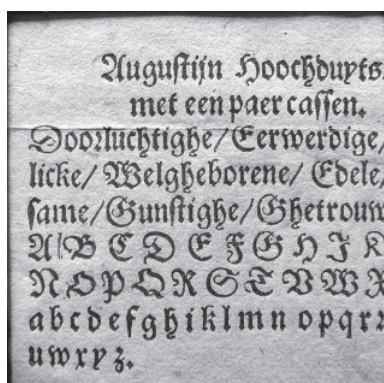 Augustijn Hoochduyts
met een paer cassen.
Dooꝛluchtighe/Eerwerdige/
licke/ Welgheborene/ Edele/
same/Gunstighe/Ghetrouw
A B C D E F G H J K
N O P Q R S T V W X
a b c d e f g h i k l m n o p q r ꝛ
u w x y z.